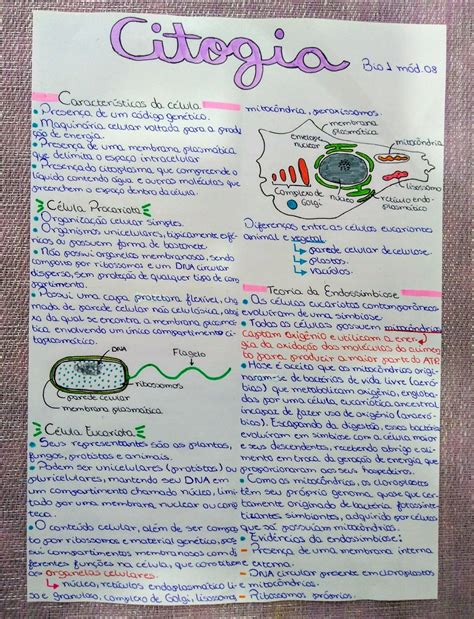 Citogia
Bio 1 mód. 08
Características da célula
• Presença de um código genético.
• Maquinária celular voltada para a produ
ção de energia.
• Presença de uma membrana plasmática
que delimita o espaço intracelular
• Presença do citoplasma, que compreende o
líquido contendo água e outras moléculas que
preenchem o espaço dentro da célula.
Célula Procariota
• Organização celular simples.
• Organismos unicelulares, tipicamente esfé-
ricos ou possuem forma de bastonete
• Não possui organelas membranosas, sendo
composto por ribossomos e um DNA circular
disperso, sem proteção de qualquer tipo de com
partimento.
• Possui uma capa protetora flexível, cha
mada de parede celular não celulósica, abai
xo da qual se encontra a membrana plasmá
tica envolvendo um único compartimento ci-
toplasmático.
DNA
Flagelo
ribossomos
parede celular
membrana plasmática
Célula Eucariota
• Seus representantes são as plantas,
fungos, protistas e animais.
• Podem ser unicelulares (protistas) ou
pluricelulares, mantendo seu DNA em
um compartimento chamado núcleo, limi-
tado por uma membrana nuclear ou cario
teca.
• O conteúdo celular, além de ser compos
to por ribossomos e material genético, pos
sui compartimentos membranosos com di
ferentes funções na célula, que constituem
as organelas celulares.
núcleo, retículos endoplasmático li
so e granuloso, complexo de Golgi, lisossomo,
mitocôndria, peroxissomos.
membrana
plasmática
envelope
nuclear
mitocôndria
lisossomo
Complexo de
Golgi
núcleo
retículo endo-
plasmático
Diferenças entre as células eucariontes
animal e vegetal
parede celular de celulose.
plastos.
vacúolos.
Teoria da Endossimbiose
• As células eucariotas contemporâneas
evoluíram de uma simbiose.
• Todas as células possuem mitocôndrias
captam oxigênio e utilizam a ener-
gia da oxidação das moléculas do alimen
to para produzir a maior parte do ATP
• Hoje é aceito que as mitocôndrias origi
naram-se de bactérias de vida livre (aeró
bias) que metabolizam oxigênio, engloba
das por uma célula eucariótica ancestral
incapaz de fazer uso de oxigênio (anaeró
bias). Escapando da digestão, essas bactérias
evoluíram em simbiose com a célula maior
e seus descendentes, recebendo abrigo e ali
mento em troca da geração de energia que
proporcionaram aos seus hospedeiros.
• Como as mitocôndrias, os cloroplastos
têm seu próprio genoma, quase que cer
tamente originado de bactéria fotossinte
tizantes simbionte, adquirido por células
que já possuíam mitocôndrias.
• Evidências da endossimbiose:
- Presença de uma membrana interna
e externa.
- DNA circular presente em cloroplastos
e mitocôndrias.
- Ribossomos próprios.